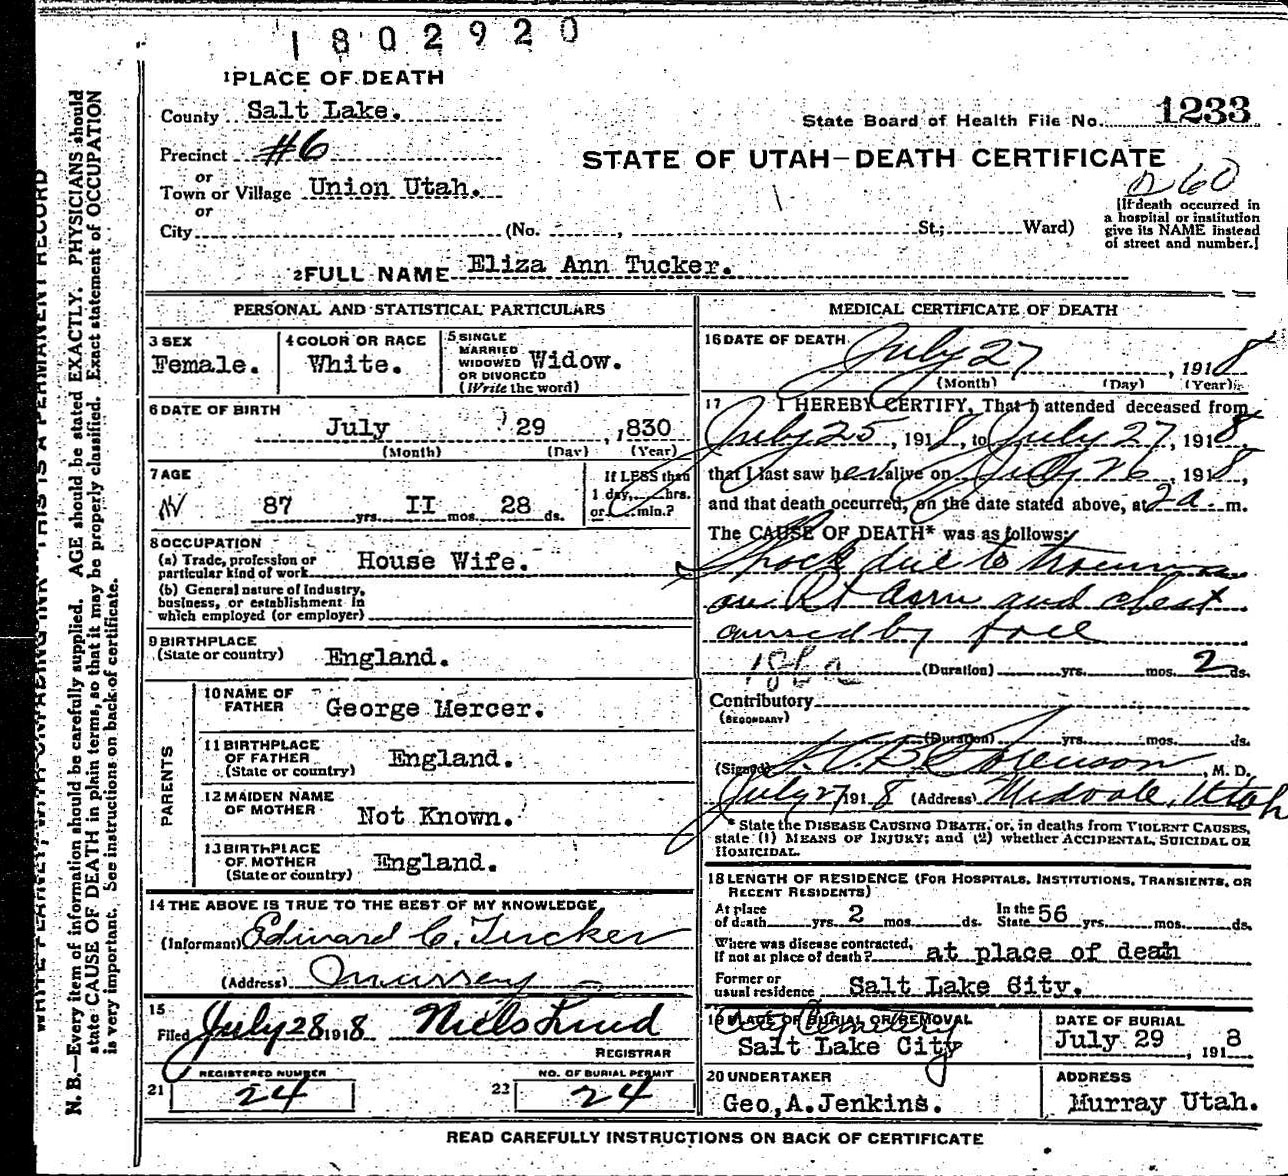 1802920
1 PLACE OF DEATH
County Salt Lake.
State Board of Health File No. 1233
Precinct #6
STATE OF UTAH—DEATH CERTIFICATE
or
Town or Village Union Utah.
or
City (No. , St.; Ward)
260
[If death occurred in
a hospital or institution
give its NAME instead
of street and number.]
2 FULL NAME Eliza Ann Tucker.
PERSONAL AND STATISTICAL PARTICULARS
3 SEX
Female.
4 COLOR OR RACE
White.
5 SINGLE
MARRIED
WIDOWED Widow.
OR DIVORCED
(Write the word)
6 DATE OF BIRTH
July 29 , 1830
(Month) (Day) (Year)
7 AGE
87 yrs. II mos. 28 ds.
If LESS than
1 day, hrs.
or min.?
8 OCCUPATION
(a) Trade, profession or
particular kind of work House Wife.
(b) General nature of Industry,
business, or establishment in
which employed (or employer)
9 BIRTHPLACE
(State or country) England.
PARENTS
10 NAME OF
FATHER George Mercer.
11 BIRTHPLACE
OF FATHER England.
(State or country)
12 MAIDEN NAME
OF MOTHER Not Known.
13 BIRTHPLACE
OF MOTHER England.
(State or country)
14 THE ABOVE IS TRUE TO THE BEST OF MY KNOWLEDGE
(Informant) Edward C. Tucker
(Address) Murrey
15
Filed July 28 1918 Niels Lind
REGISTRAR
REGISTERED NUMBER
21 24
NO. OF BURIAL PERMIT
22 24
MEDICAL CERTIFICATE OF DEATH
16 DATE OF DEATH
July 27 , 1918
(Month) (Day) (Year)
17 I HEREBY CERTIFY, That I attended deceased from
July 25, 1918, to July 27, 1918,
that I last saw her alive on July 26, 1918,
and that death occurred, on the date stated above, at 2 a. m.
The CAUSE OF DEATH* was as follows:
Shock due to trauma
on Rt Arm and chest
caused by fall
(Duration) yrs. mos. 2 ds.
Contributory
(SECONDARY)
(Duration) yrs. mos. ds.
(Signed) Sorenson, M. D.
July 27 1918 (Address) Midvale, Utah
* State the DISEASE CAUSING DEATH, or, in deaths from VIOLENT CAUSES,
state (1) MEANS OF INJURY; and (2) whether ACCIDENTAL, SUICIDAL OR
HOMICIDAL.
18 LENGTH OF RESIDENCE (FOR HOSPITALS, INSTITUTIONS, TRANSIENTS, OR
RECENT RESIDENTS)
At place
of death yrs. 2 mos. ds. In the State 56 yrs. mos. ds.
Where was disease contracted,
if not at place of death? at place of death
Former or
usual residence Salt Lake City.
19 PLACE OF BURIAL OR REMOVAL
City Cemetery
Salt Lake City
DATE OF BURIAL
July 29 , 1918
20 UNDERTAKER
Geo, A. Jenkins.
ADDRESS
Murray Utah.
READ CAREFULLY INSTRUCTIONS ON BACK OF CERTIFICATE
WRITE PLAINLY, WITH UNFADING INK—THIS IS A PERMANENT RECORD
N. B.—Every item of information should be carefully supplied. AGE should be stated EXACTLY. PHYSICIANS should
state CAUSE OF DEATH in plain terms, so that it may be properly classified. Exact statement of OCCUPATION
is very important. See instructions on back of certificate.